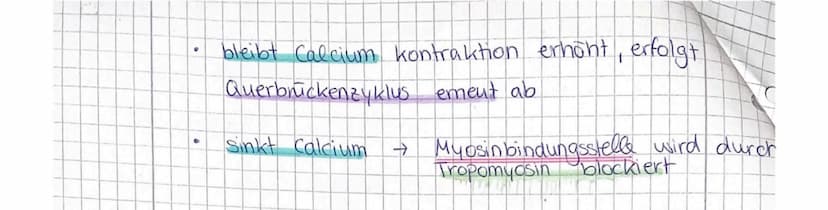 • bleibt Calcium kontraktion erhöht, erfolgt
Querbrückenzyklus erneut ab
• sinkt Calcium → Myosinbindungsstelle wird durch
Tropomyosin blockiert